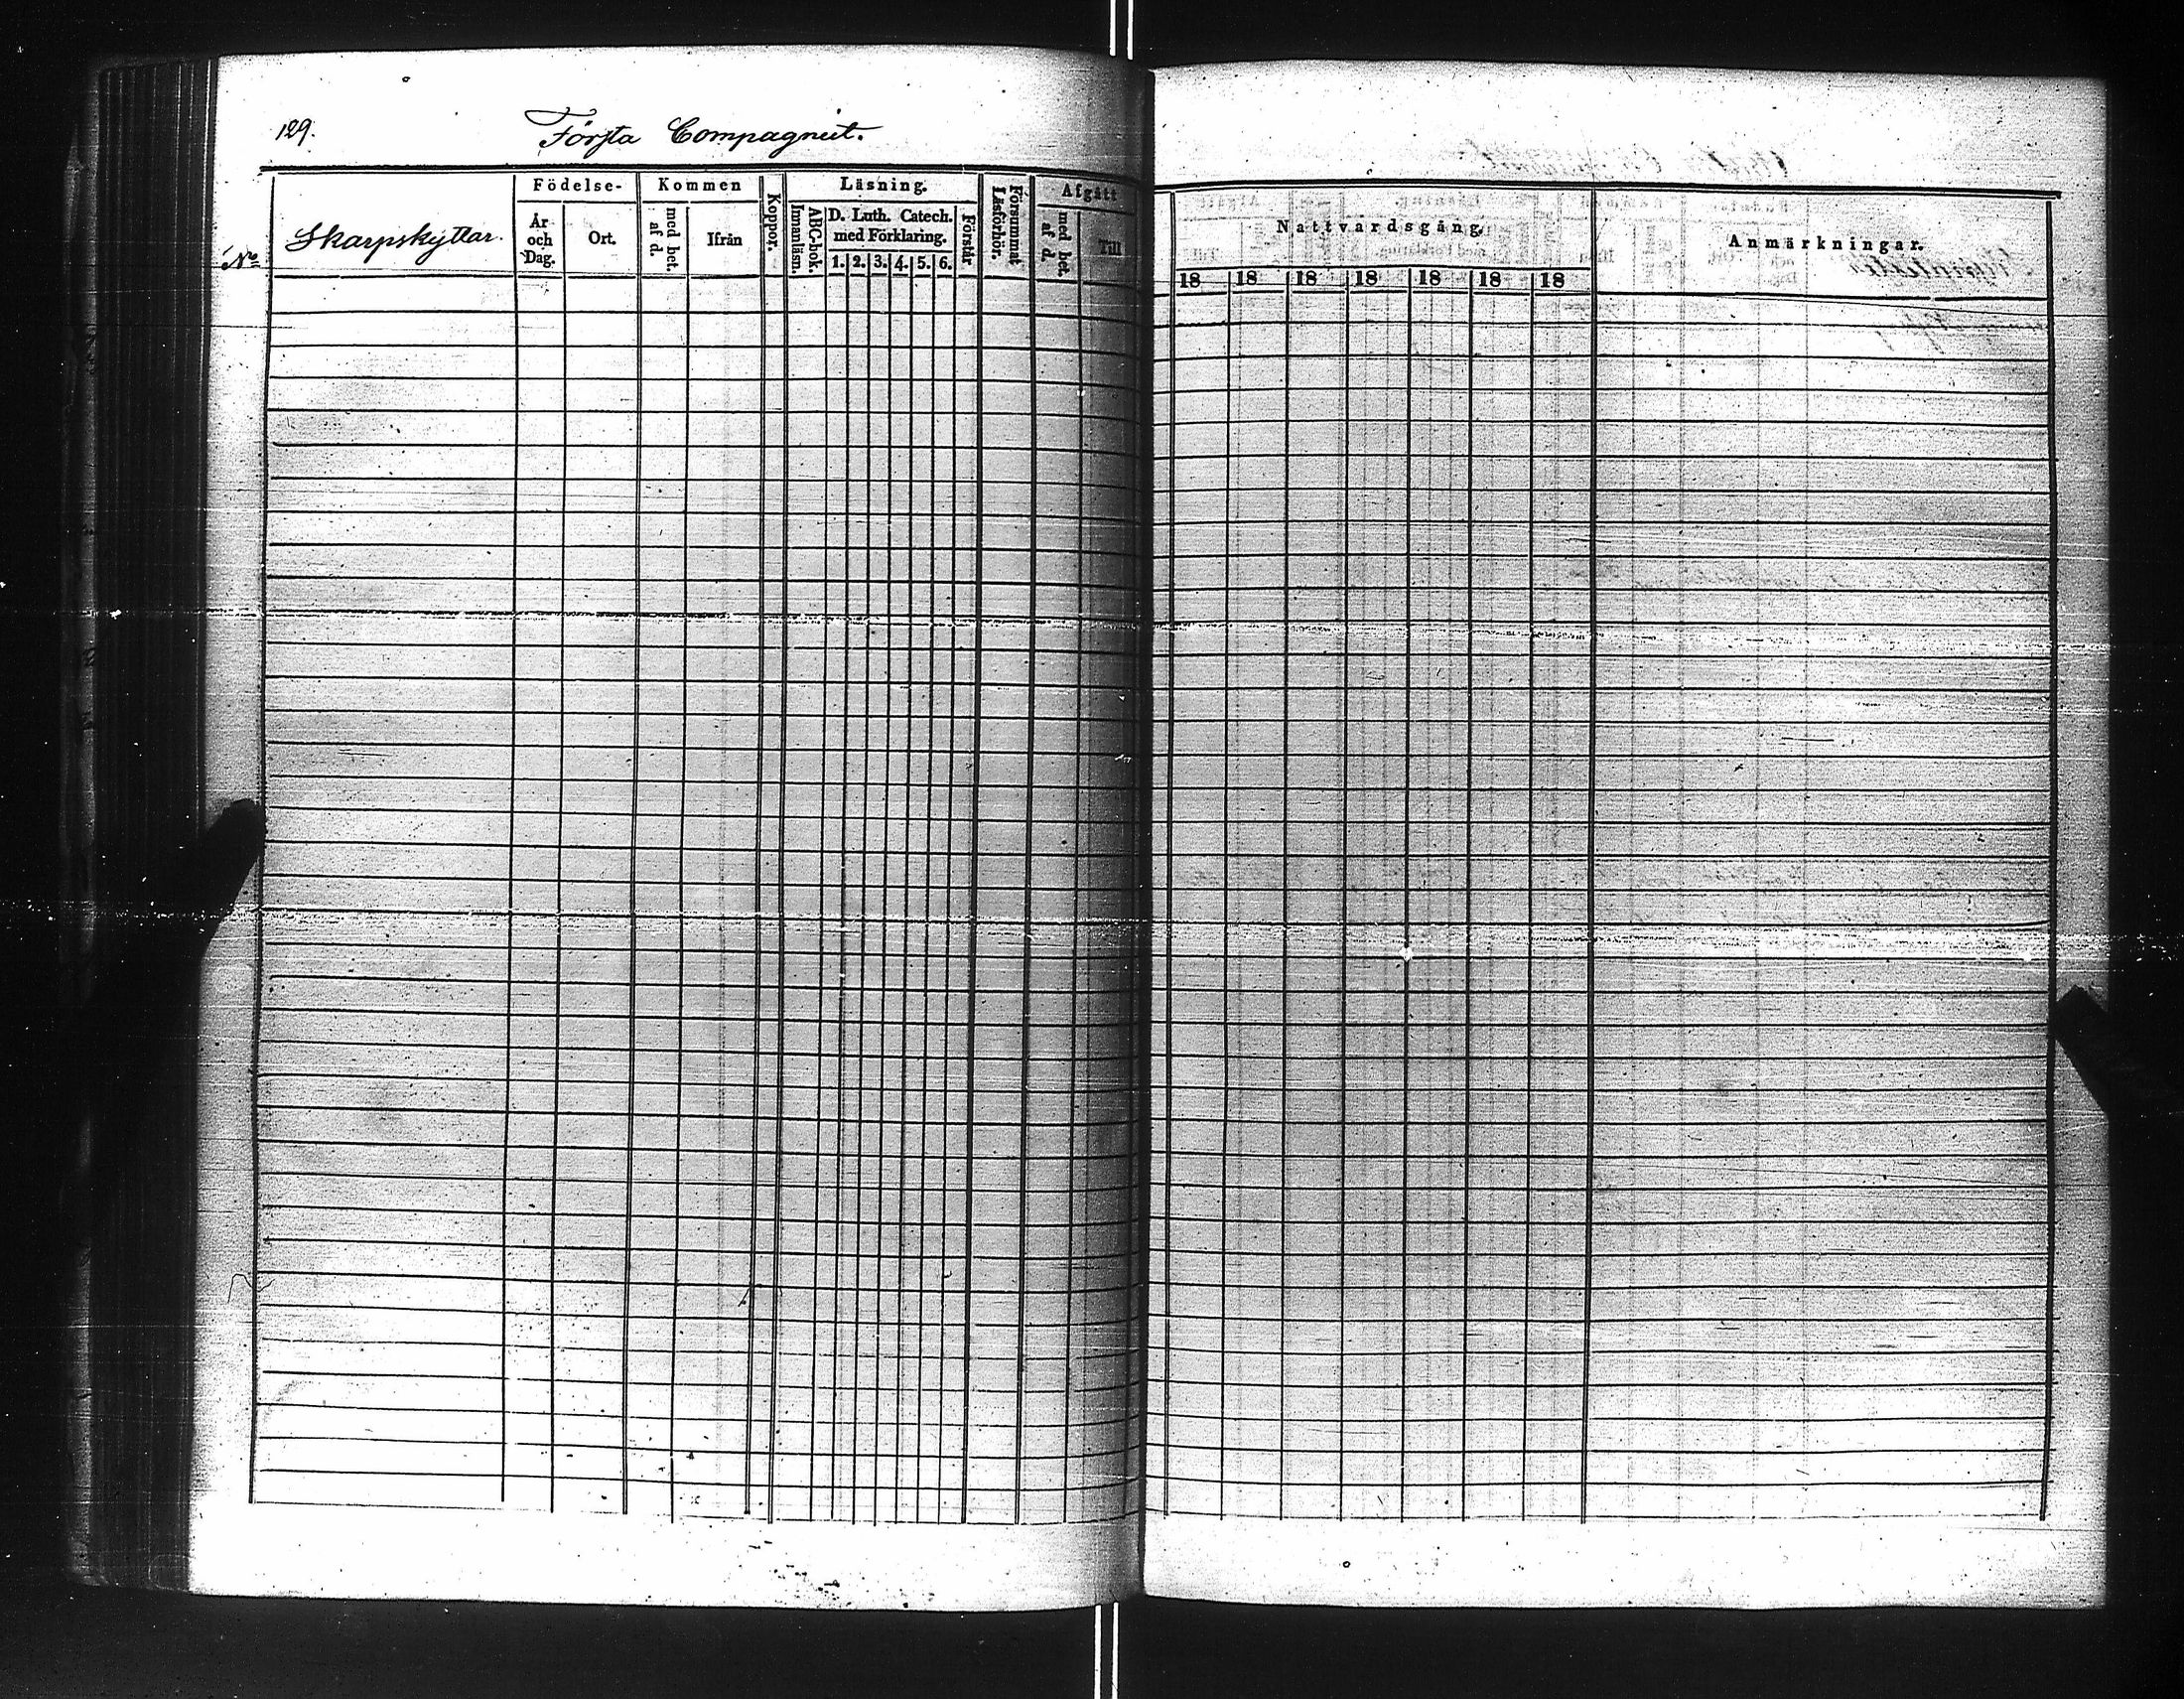 129.
Första Compagniet.
No
Skarpskyttar.
Födelse-
År och Dag.
Ort.
Kommen
med bet. af d.
Ifrån
Koppor.
Läsning.
Innanläsn.
ABC-bok.
D. Luth. Catech. med Förklaring.
1. 2. 3. 4. 5. 6.
Förstår
Försummat Läsförhör.
Afgått
med bet. af d.
Till
Nattvardsgång.
18 18 18 18 18 18 18
Anmärkningar.